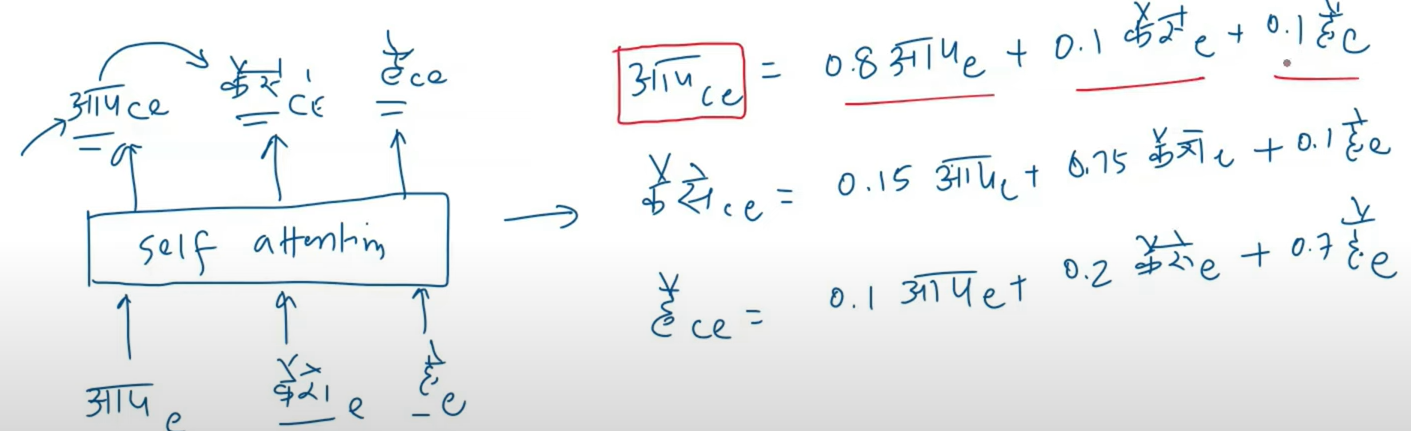 आपce कैसेce हैंce
self attention
आपe कैसेe हैंe
आपce = 0.8 आपe + 0.1 कैसेe + 0.1 हैंe
कैसेce = 0.15 आपe + 0.75 कैसेe + 0.1 हैंe
हैंce = 0.1 आपe + 0.2 कैसेe + 0.7 हैंe